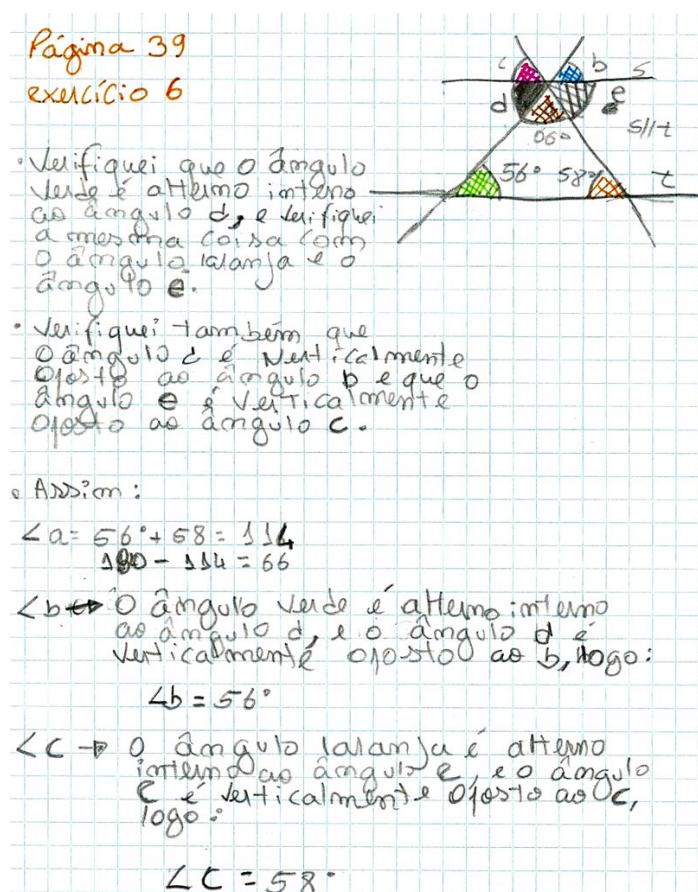 Página 39
exercício 6
c b s
d e
s//t
66°
56° 58° t
. Verifiquei que o ângulo
verde é alterno interno
ao ângulo d, e verifiquei
a mesma coisa com
o ângulo laranja e o
ângulo e.
. Verifiquei também que
o ângulo d é verticalmente
oposto ao ângulo b e que o
ângulo e é verticalmente
oposto ao ângulo c.
. Assim:
∠a= 56°+58=114
180-114=66
∠b→ O ângulo verde é alterno interno
ao ângulo d, e o ângulo d é
verticalmente oposto ao b, logo:
∠b=56°
∠c→ O ângulo laranja é alterno
interno ao ângulo e, e o ângulo
e é verticalmente oposto ao c,
logo:
∠c=58°